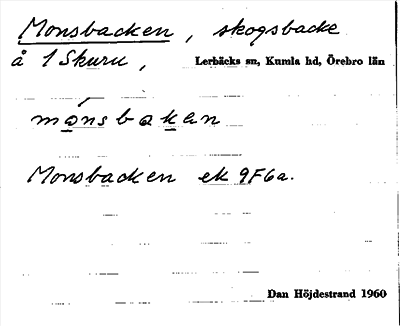 Monsbacken, skogsbacke
å 1 Skuru, Lerbäcks sn, Kumla hd, Örebro län
mónsbakan
Monsbacken ek 9F6a.
Dan Höjdestrand 1960